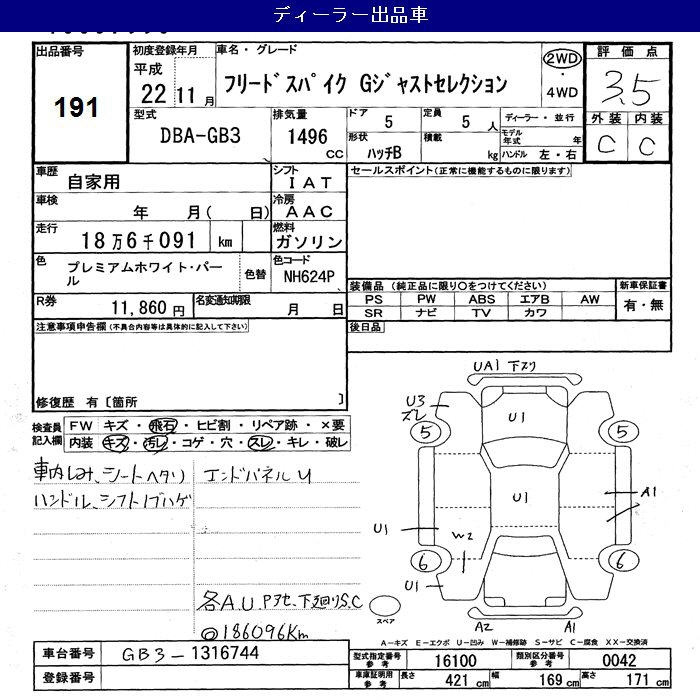 ディーラー出品車
出品番号
191
初度登録年月
平成
22 11月
車名・グレード
フリードスパイク Gジャストセレクション
2WD
・
4WD
評価点
3.5
外装 内装
C C
型式
DBA-GB3
排気量
1496
CC
ドア
5
定員
5 人
形状
ハッチB
積載
kg
ディーラー・並行
モデル年式 年
ハンドル 左・右
車歴
自家用
シフト
IAT
車検
年 月( 日)
冷房
AAC
走行
18万6千091 km
燃料
ガソリン
色
プレミアムホワイト・パール
色替
色コード
NH624P
R券
11,860円
名変通知期限
月 日
セールスポイント(正常に機能するものに限ります)
装備品 (純正品に限り○をつけてください)
PS PW ABS エアB AW
SR ナビ TV カワ
新車保証書
有・無
後日品
注意事項申告欄(不具合内容等は具体的に記入して下さい)
修復歴 有[箇所 ]
検査員記入欄
FW キズ・飛石・ヒビ割・リペア跡・×要
内装 キズ・汚レ・コゲ・穴・スレ・キレ・破レ
車内しみ、シートヘタリ
ハンドル、シフトノブハゲ
エンドパネルU
各A.U Pアセ、下廻りS.C
@186096Km
UA1 下スリ
U3
ズレ
5
U1
5
U1
A1
U1
W2
6
6
U1
A2
A1
スペア
A-キズ E-エクボ U-凹み W-補修跡 S-サビ C-腐食 XX-交換済
車台番号
GB3-1316744
登録番号
型式指定番号
参考
16100
類別区分番号
参考
0042
車庫証明用
参考
長さ 421 cm
幅 169 cm
高さ 171 cm